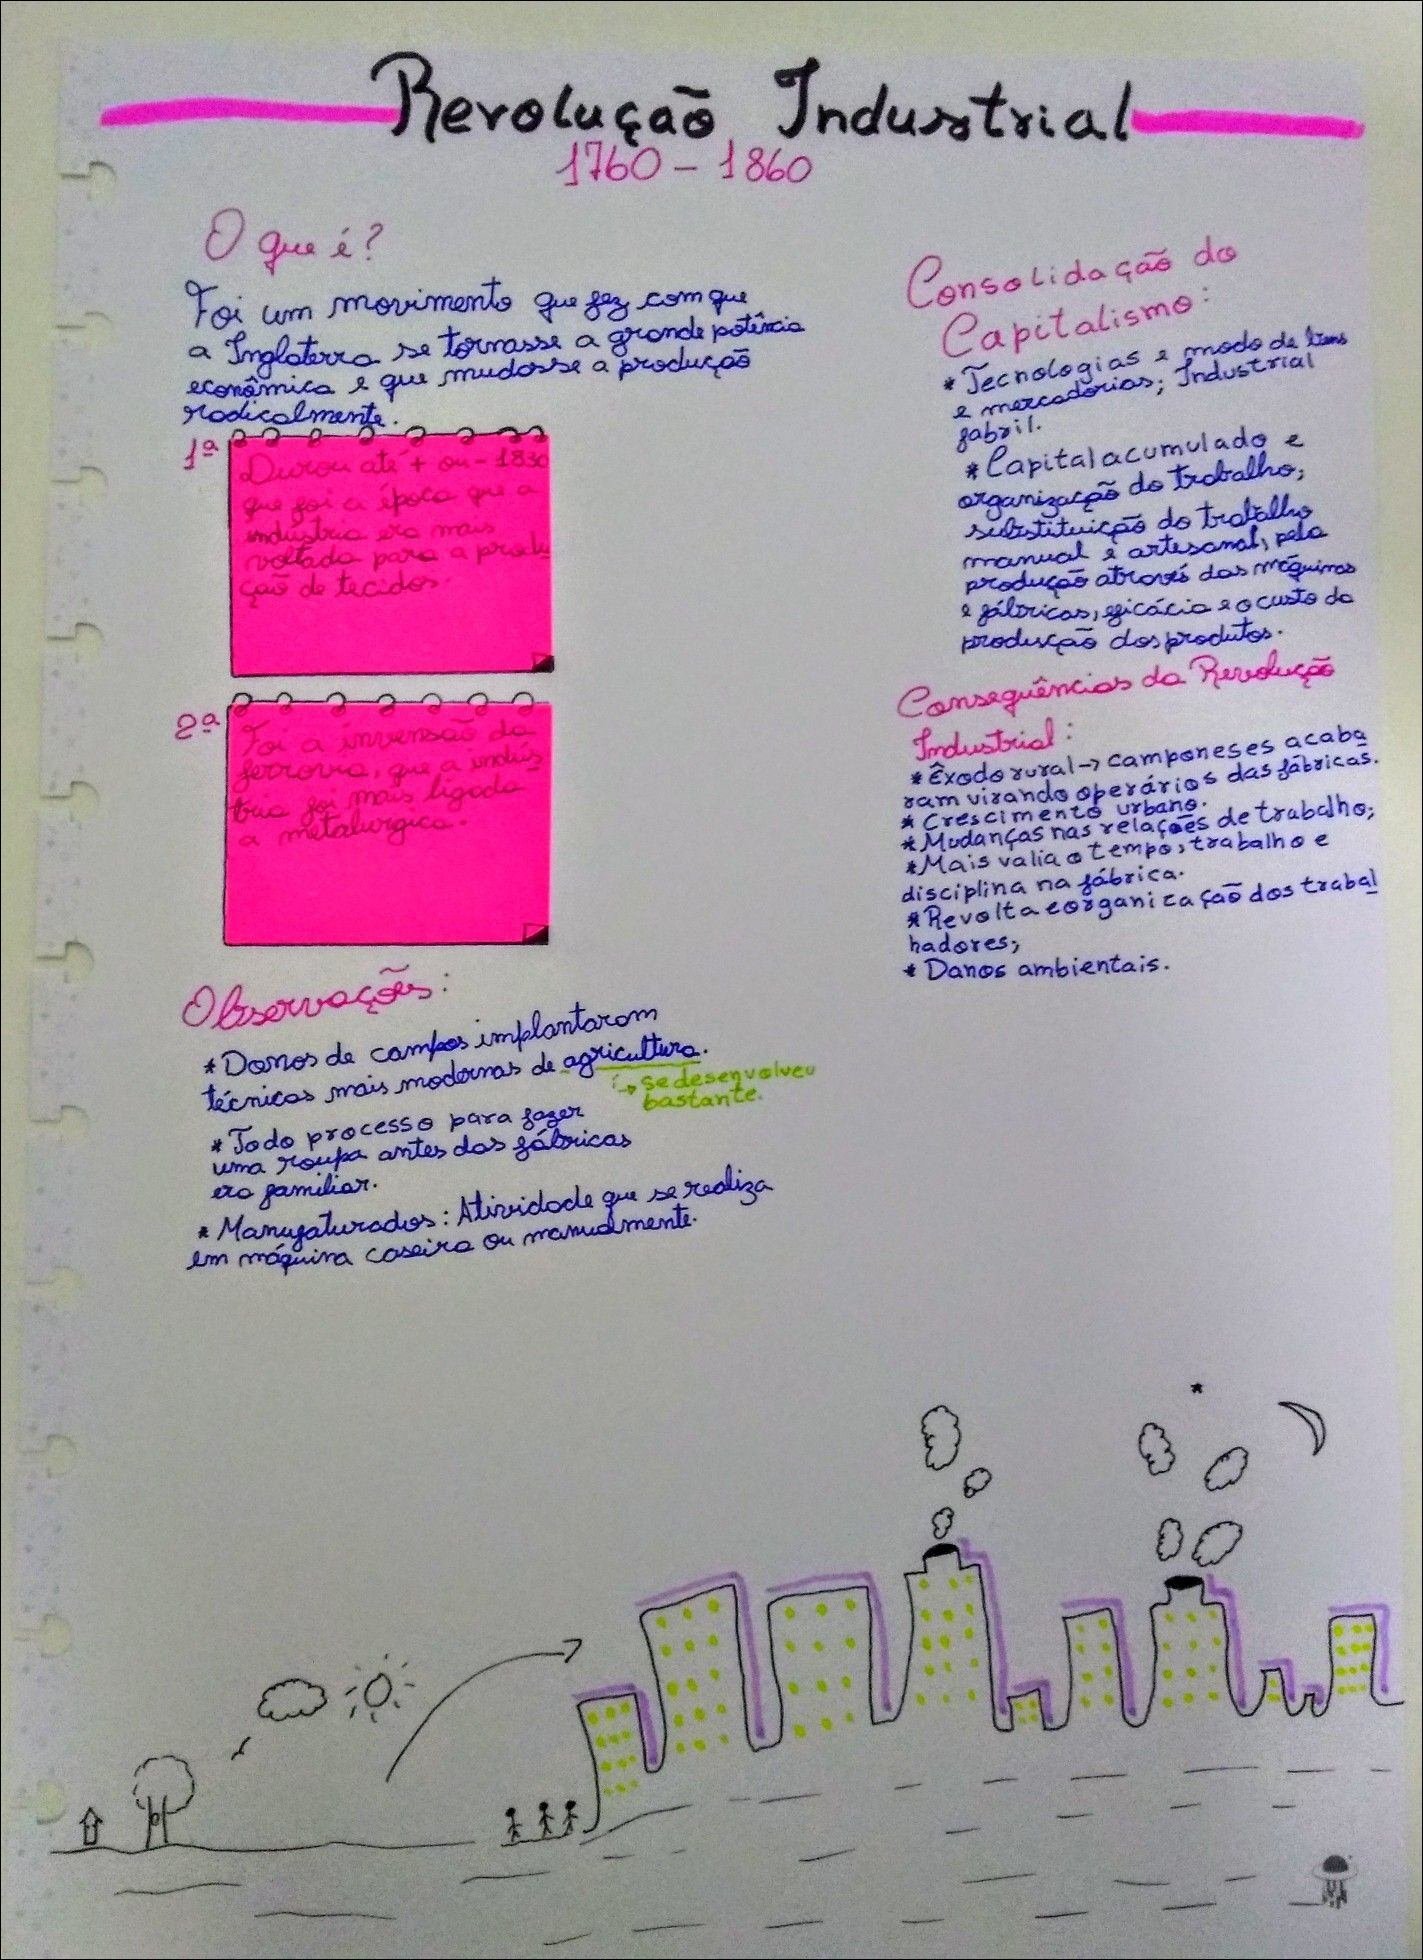 Revolução Industrial
1760 - 1860
O que é?
Foi um movimento que fez com que
a Inglaterra se tornasse a grande potência
econômica e que mudasse a produção
radicalmente.
1ª
Durou até + ou - 1830
que foi a época que a
indústria era mais
voltada para a produ
ção de tecidos.
2ª
Foi a invensão da
ferrovia, que a indús
tria foi mais ligada
a metalurgica.
Observações:
* Donos de campos implantaram
técnicas mais modernas de agricultura.
↳ se desenvolveu
bastante.
* Todo processo para fazer
uma roupa antes das fábricas
era familiar.
* Manufaturados: Atividade que se realiza
em máquina caseira ou manualmente.
Consolidação do
Capitalismo:
* Tecnologias e modo de
e mercadorias; Industrial
fabril.
* Capital acumulado e
organização do trabalho;
substituição do trabalho
manual e artesanal, pela
produção através das máquinas
e fábricas, eficácia e o custo da
produsção dos produtos.
Consequências da Revolução
Industrial:
* Êxodo rural → camponeses acaba
ram virando operários das fábricas.
* Crescimento urbano.
* Mudanças nas relações de trabalho;
* Mais valia o tempo, trabalho e
disciplina na fábrica.
* Revolta e organização dos trabal
hadores;
* Danos ambientais.